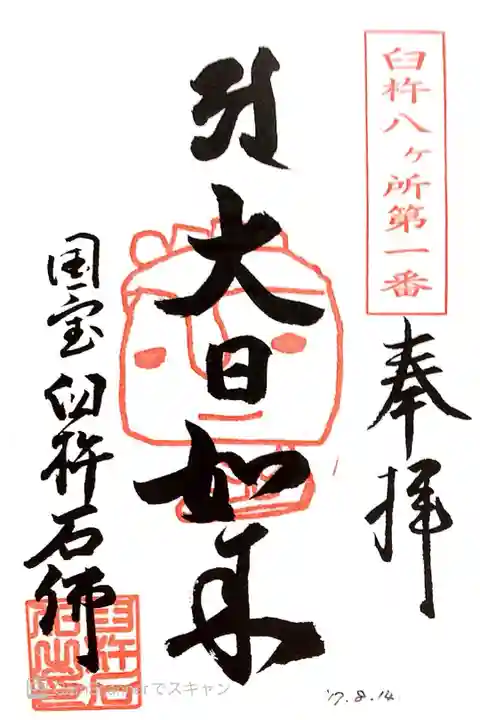 臼杵八ヶ所第一番
奉拝
大日如来
国宝臼杵石佛
でスキャン
'17.8.14